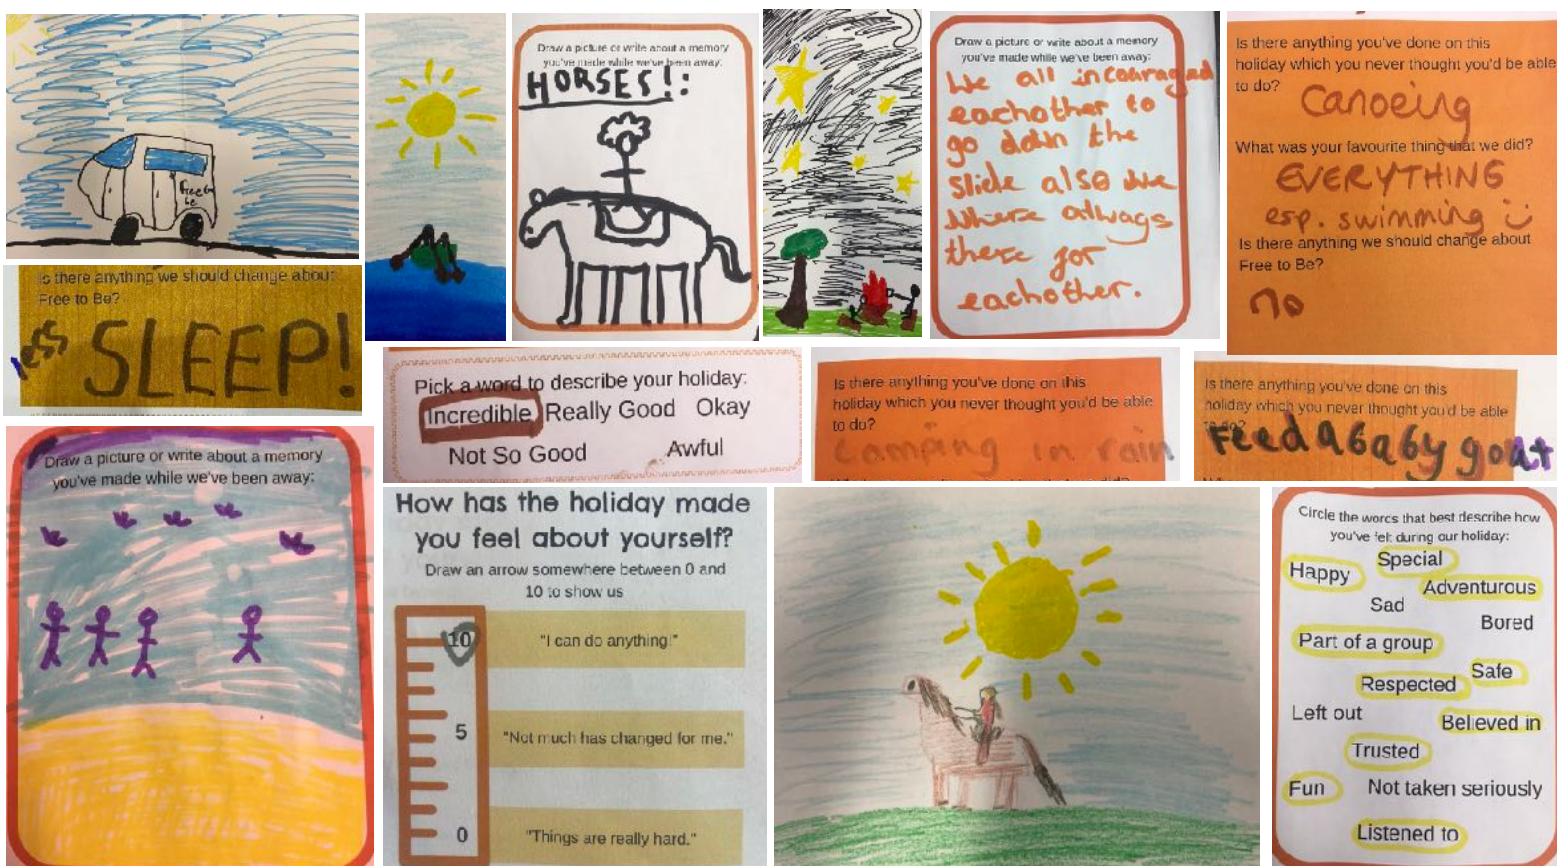 Free to
be
Draw a picture or write about a memory
you've made while we've been away:
HORSES!:
Draw a picture or write about a memory
you've made while we've been away:
We all incouraged
eachother to
go down the
slide also we
where always
there for
eachother.
Is there anything you've done on this
holiday which you never thought you'd be able
to do?
Canoeing
What was your favourite thing that we did?
EVERYTHING
esp. swimming
Is there anything we should change about
Free to Be?
no
Is there anything we should change about
Free to Be?
less SLEEP!
Pick a word to describe your holiday:
Incredible Really Good Okay
Not So Good Awful
Is there anything you've done on this
holiday which you never thought you'd be able
to do?
Camping in rain
Is there anything you've done on this
holiday which you never thought you'd be able
to do?
Feed a baby goat
Draw a picture or write about a memory
you've made while we've been away:
How has the holiday made
you feel about yourself?
Draw an arrow somewhere between 0 and
10 to show us
10 "I can do anything!"
5 "Not much has changed for me."
0 "Things are really hard."
Circle the words that best describe how
you've felt during our holiday:
Special
Happy
Adventurous
Sad
Bored
Part of a group
Safe
Respected
Left out
Believed in
Trusted
Fun
Not taken seriously
Listened to